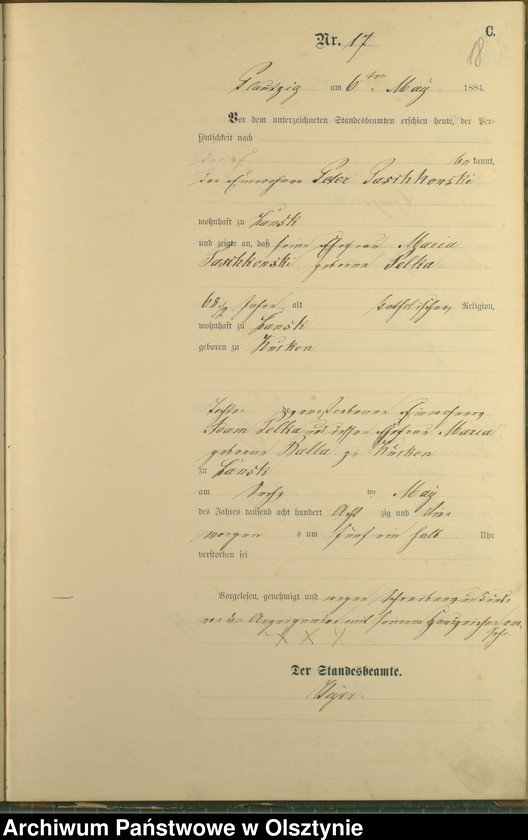 C.
18
Nr. 17
Plautzig am 6ten May 1884.
Vor dem unterzeichneten Standesbeamten erschien heute, der Per-
sönlichkeit nach
bekannt,
der Einwohner Peter Paschkowski
wohnhaft zu Lanski
und zeigte an, daß seine Ehefrau Maria
Paschkowski geborne Pelka
68 1/2 Jahre alt katholischer Religion,
wohnhaft zu Lanski
geboren zu Kurken
Tochter der verstorbenen Einwohner
Adam Pelka und dessen Ehefrau Maria
geborne Balla zu Kurken
zu Lanski
am Sechs ten May
des Jahres tausend acht hundert Acht zig und Vier
morgen s um fünf ein halb Uhr
verstorben sei
Vorgelesen, genehmigt und wegen Schreibensunkunde
von dem Anzeigenden mit seinem Handzeichen ver-
sehn
X X X
Der Standesbeamte.
Archiwum Państwowe w Olsztynie